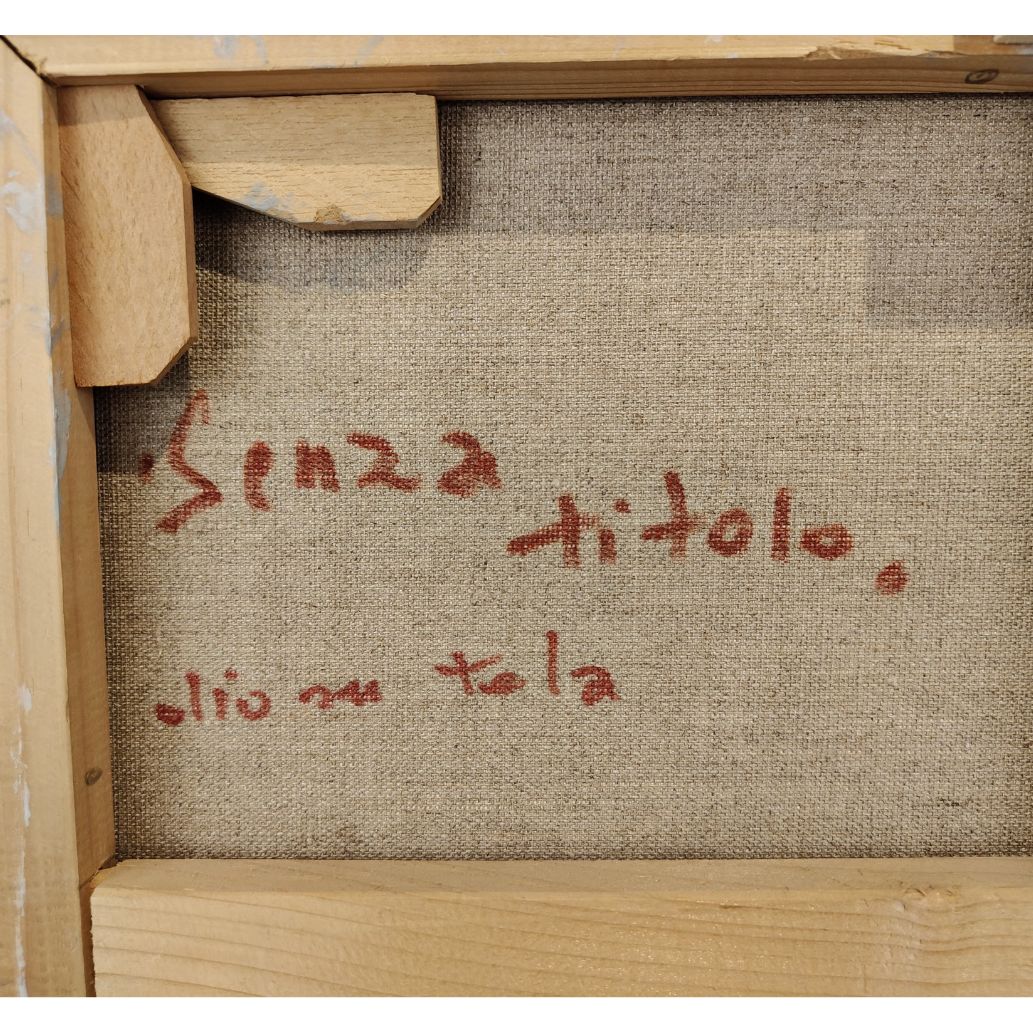 Senza
titolo.
olio su tela